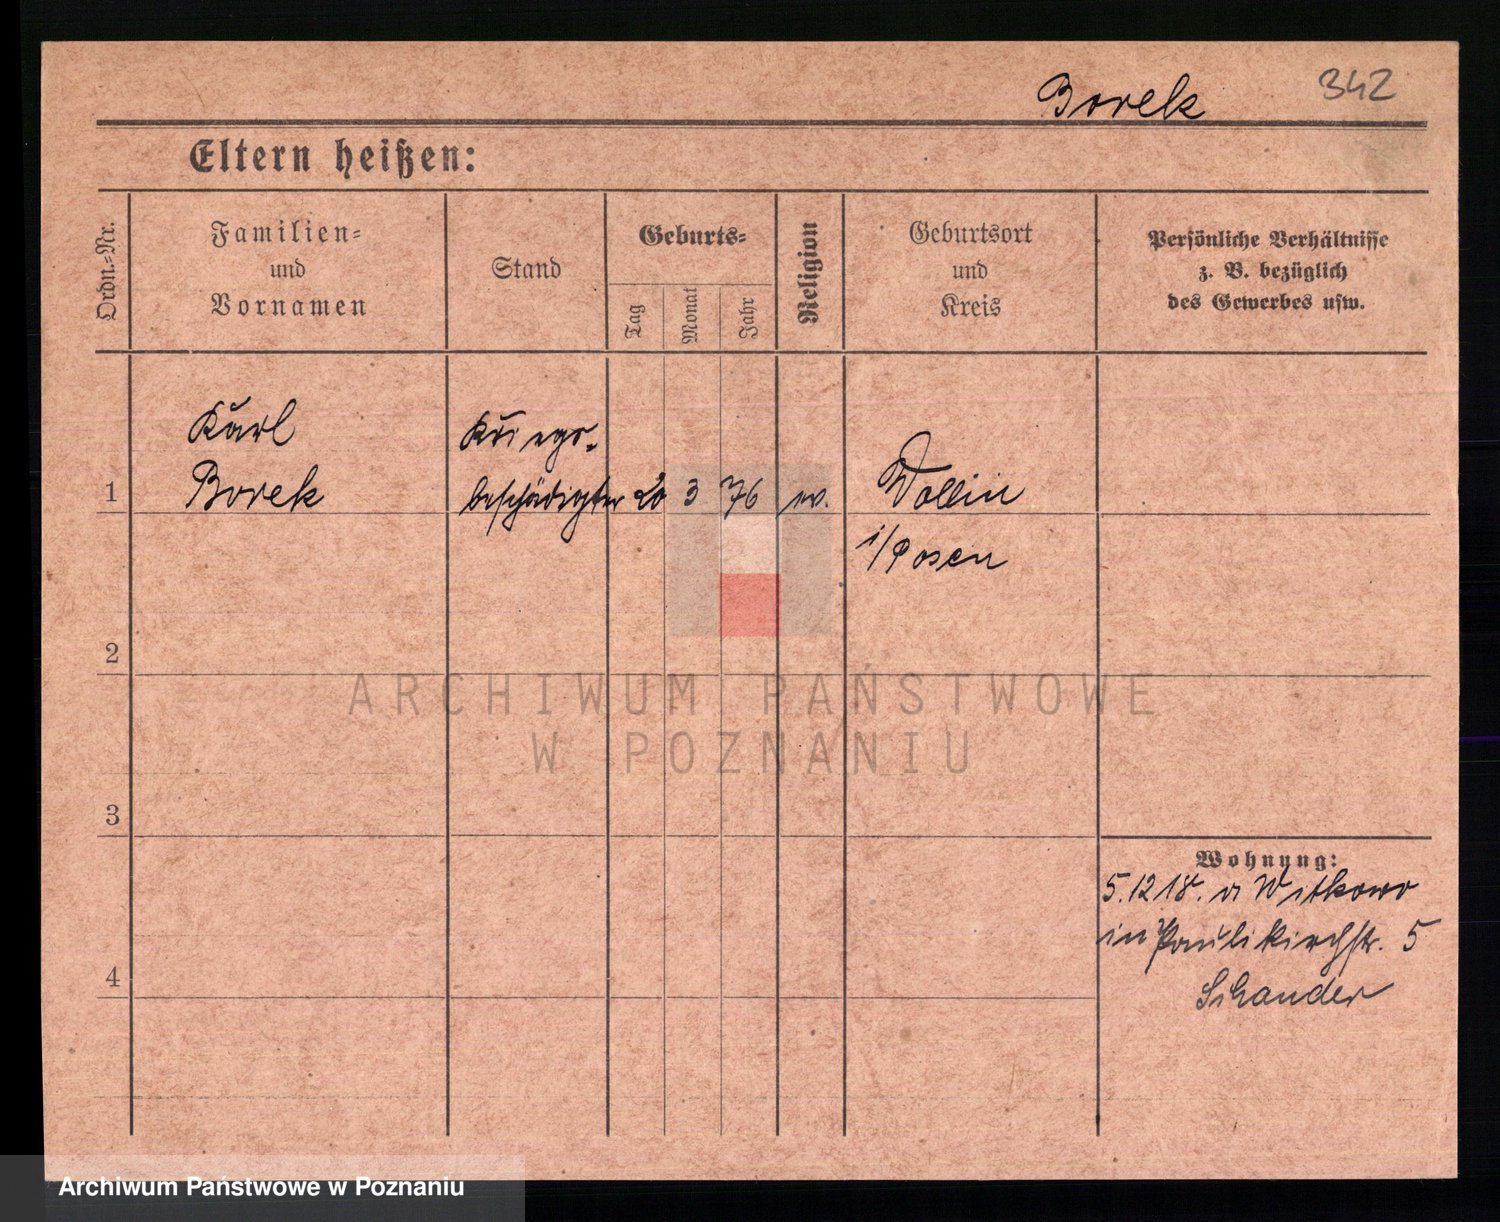 Borek 342
Eltern heißen:
Ordn.-Nr.
Familien-
und
Vornamen
Stand
Geburts-
Tag
Monat
Jahr
Religion
Geburtsort
und
Kreis
Persönliche Verhältnisse
z. B. bezüglich
des Gewerbes usw.
Karl
Kriegs-
1 Borek beschädigter 3 76 ev. Wollin
i/Posen
2
ARCHIWUM PAŃSTWOWE
W POZNANIU
3
Wohnung:
5.12 18. v Witkowo
in Paulikirchstr. 5
4
Archiwum Państwowe w Poznaniu